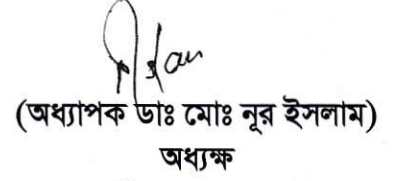 (অধ্যাপক ডাঃ মোঃ নূর ইসলাম)
অধ্যক্ষ